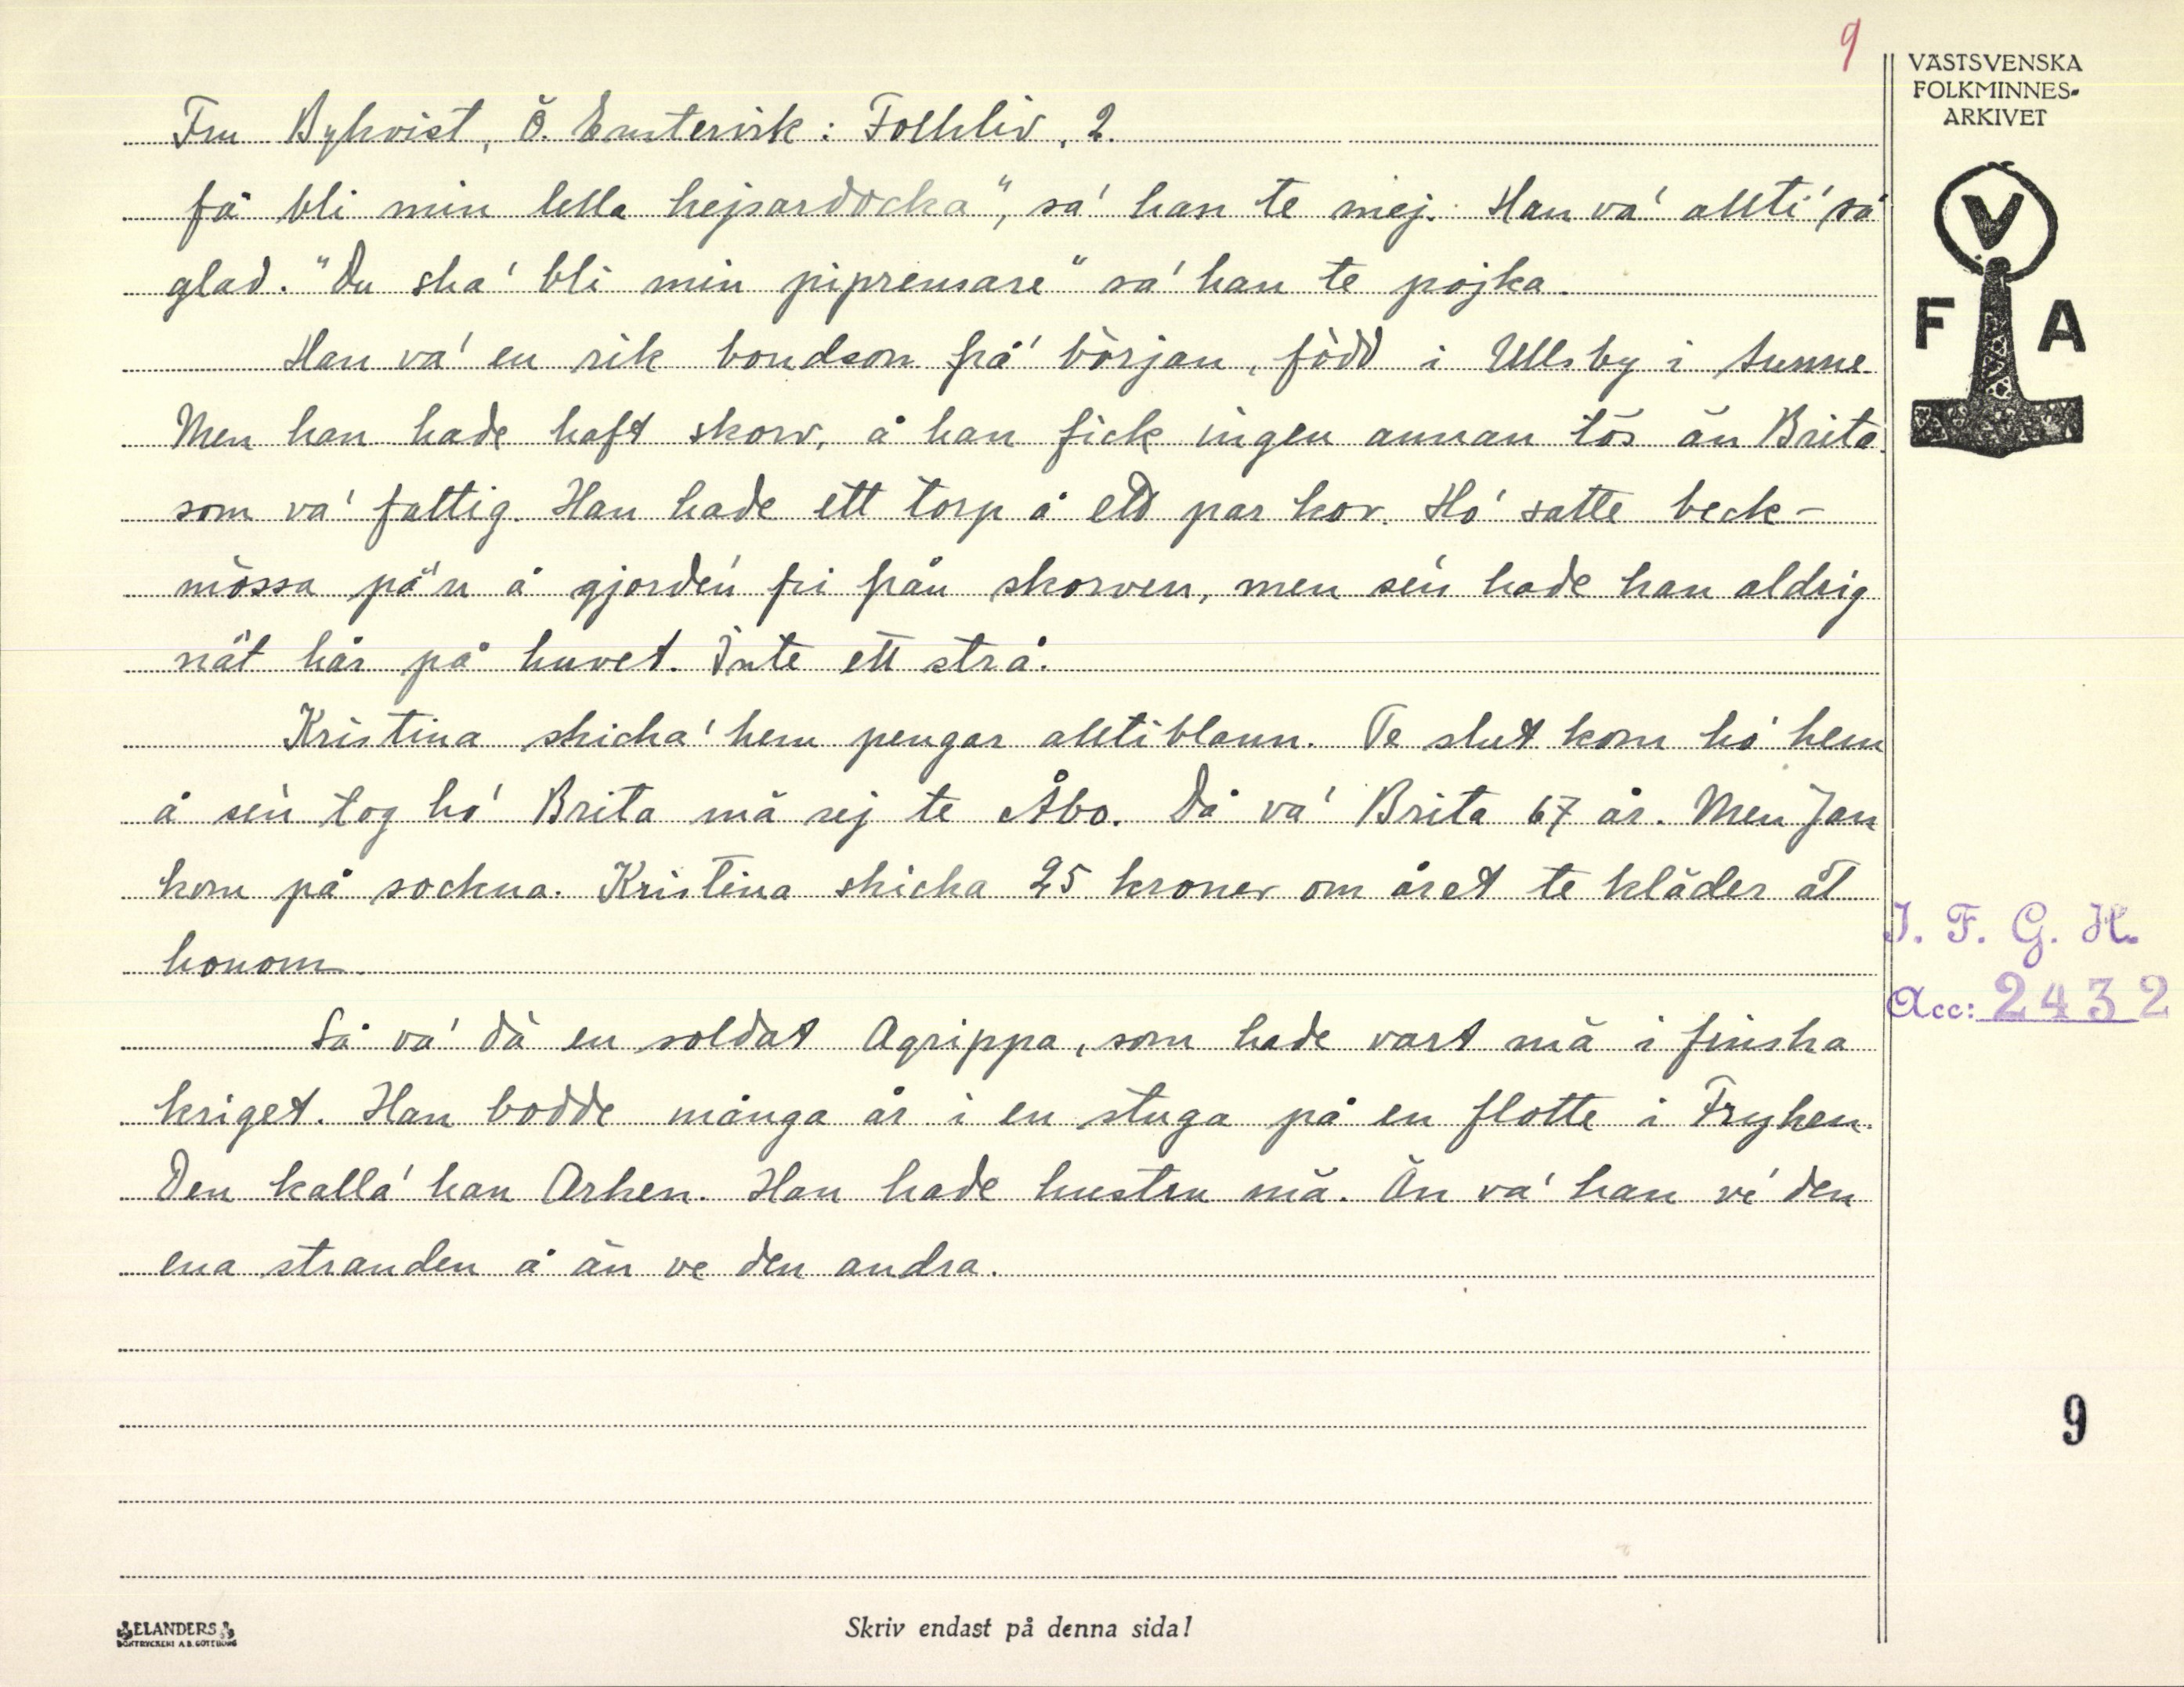 9
VÄSTSVENSKA
FOLKMINNES-
ARKIVET
V
F A
Fru Bykvist, Ö. Emtervik: Folkliv, 2.
få bli min lella hejsardocka", sa' han te mej. Han va' allti' så
glad. "Du ska' bli min piprensare" sa' han te pojka.
Han va' en rik bondson frå' början, född i Ullsby i Sunne.
Men han hade haft skorv, å han fick ingen annan tös än Brita
som va' fattig. Han hade ett torp å ett par kor. Ho' satte beck-
mössa på'n å gjorde'n fri från skorven, men se'n hade han aldrig
nåt hår på huvet. Inte ett strå.
Kristina skicka' hem pengar alltiblann. Te slut kom ho' hem
å se'n tog ho' Brita mä sej te Åbo. Då va' Brita 67 år. Men Jan
kom på sockna. Kristina skicka 25 kroner om året te kläder åt
honom.
Så va' dä en soldat Agrippa, som hade vart mä i finska
kriget. Han bodde många år i en stuga på en flotte i Fryken.
Den kalla' han Arken. Han hade hustru mä. Än va' han ve' den
ena stranden å än ve den andra.
I. F. G. H.
Acc: 2432
9
ELANDERS
BOKTRYCKERI A.B. GÖTEBORG
Skriv endast på denna sida!